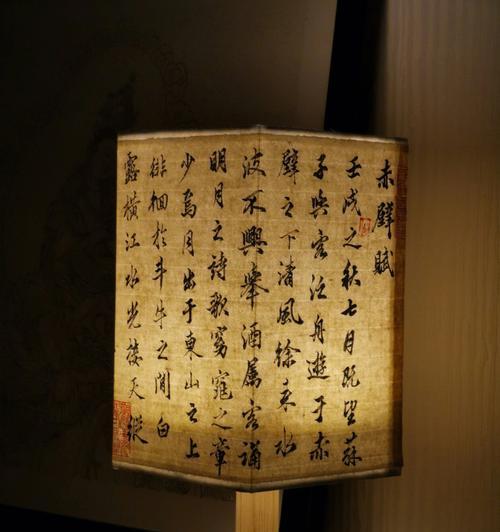 赤壁賦
壬戌之秋七月既望蘇
子與客泛舟遊于赤
壁之下清風徐來水
波不興舉酒属客誦
明月之詩歌窈窕之章
少焉月出于東山之上
徘徊於斗牛之間白
露橫江水光接天縱